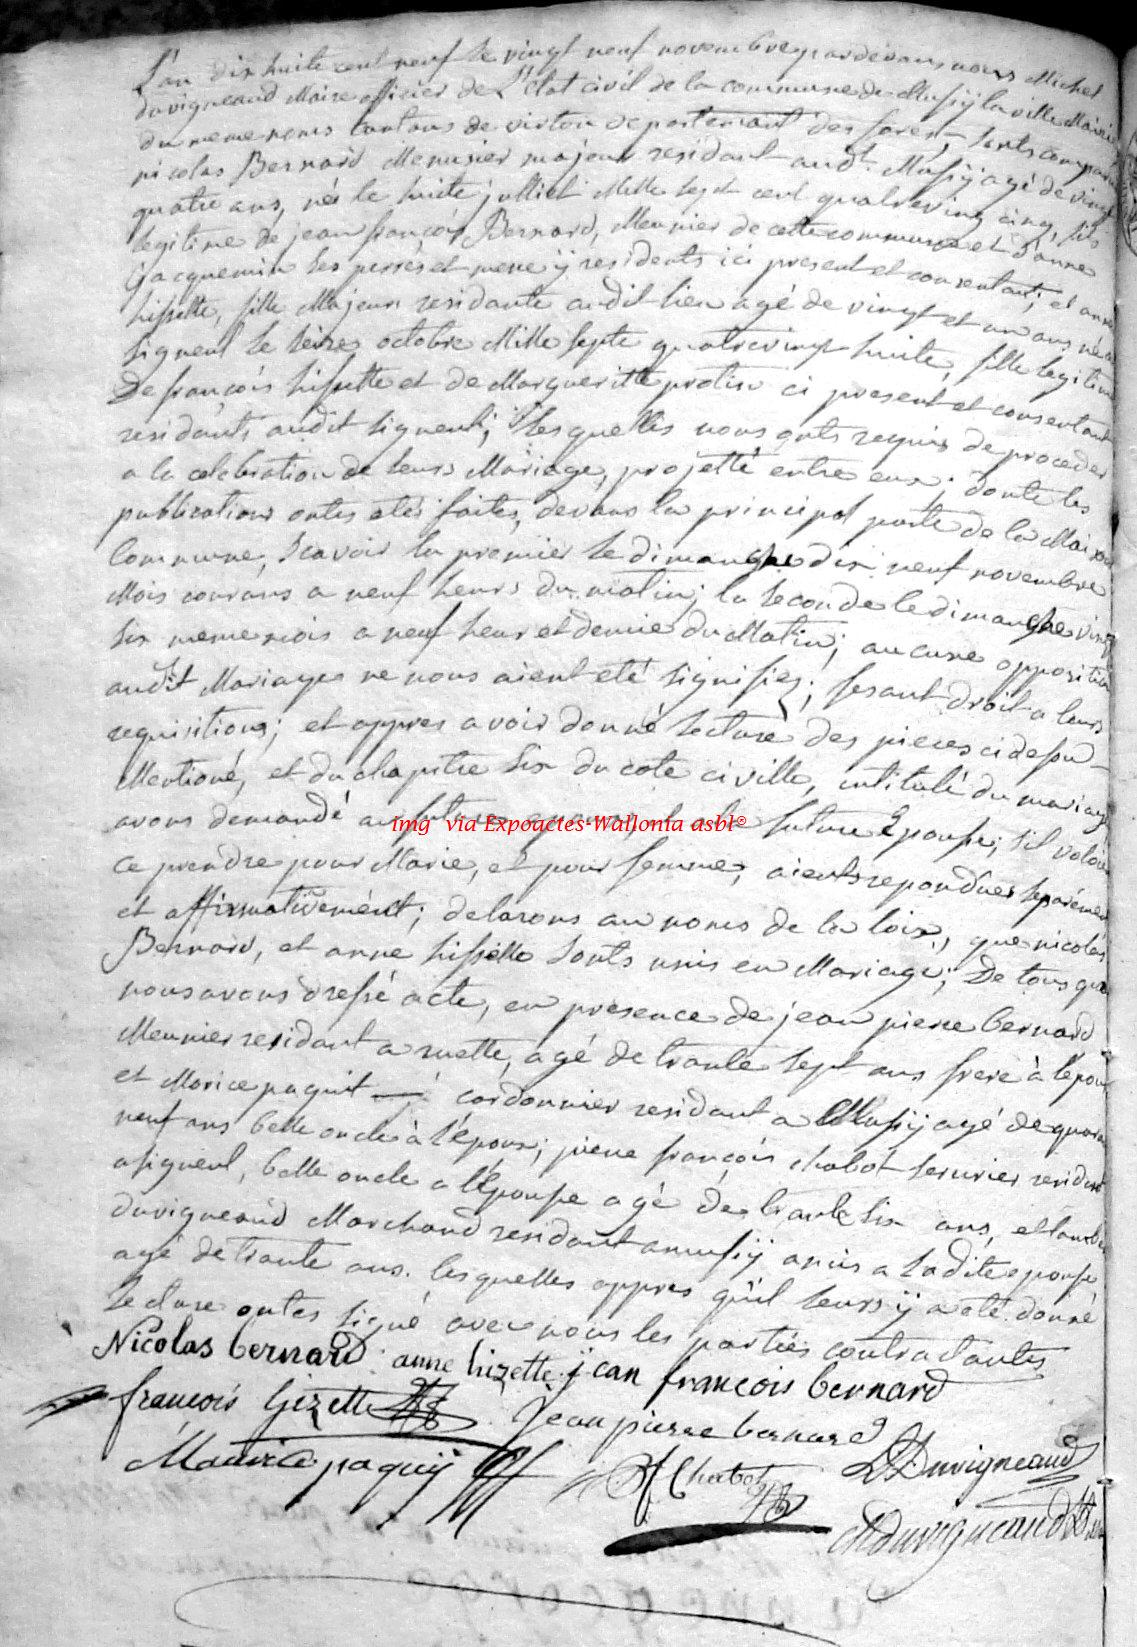 L'an dix huite cent neuf le vingt neuf novembre pardevans nous Michel
duvigneaud Maire officier de L'etat civil de la commune de Mussÿ la ville Mairie
du meme noms Cantons de virton departemant des forest, sonts comparu
nicolas Bernard Menusier majeur residant audt Mussÿ agé de vingt
quatre ans, nés le huite julliet Mille sept cent quatreving cinq, fils
legitime de jean françois Bernard, Meunier de cette commune et d'anne
jacquemin ses perres et mere ÿ residents ici present et consentant; et anne
hissette, fille Majeur residante audit lieu agé de vingt et un ans né a
signeul le seize octobre Mille septe quatrevingt huite, fille legitime
De françois hissette et de Margueritte protin ci present et consentant
residants audit signeul; lesquelles nous onts requis de proceder
a la celebration de leurs Mariage, projetté entre eux; donte les
publications ontes etés faites, devans la principal porte de la Maison
Commune, scavoir la premier le dimanche dix neuf novembre
Mois courans a neuf heurs du matin; la seconde le dimanche vingt
six meme mois a neuf heur et demie du Matin; aucune opposition
audit Mariage ne nous aient eté signifiez; fesant droit a leurs
requisitions; et appres avoir donné lecture des pieces cidessu
Mentioné, et du chapitre six du cote civille, intitulé du mariage
avons demandé au future epoux et a la future Epouse; s'il voloient
ce prendre pour Marie, et pour femme, aients repondues separément
et affirmativemént; delarons au noms de la loix, que nicolas
Bernard, et anne hissette sonts unis en Mariage; De tous quoi
nous avons dressé acte, en presence de jean pierre bernard
Meunier residant a ruette, agé de trante sept ans frere à l'epoux
et Morice paquit cordonnier residant a Mussÿ agé de quarante
neuf ans belle oncle à l'époux; pierre françois chabot serurier residant
asigneul, belle oncle a l'épouse agé de trante six ans, et
duvigneaud Marchand residant amussÿ amis a ladite epouse
agé de trante ans. lesquelles appres qu'il leurs ÿ a eté donné
lecture ontes signé avec nous les parties contractantes
Nicolas bernard anne hizette jean françois bernard
françois hizette Jean pierre bernard
Maurice paquij PF Chabot Duvigneaud
Mduvigneaud
img via Expoactes-Wallonia asbl©